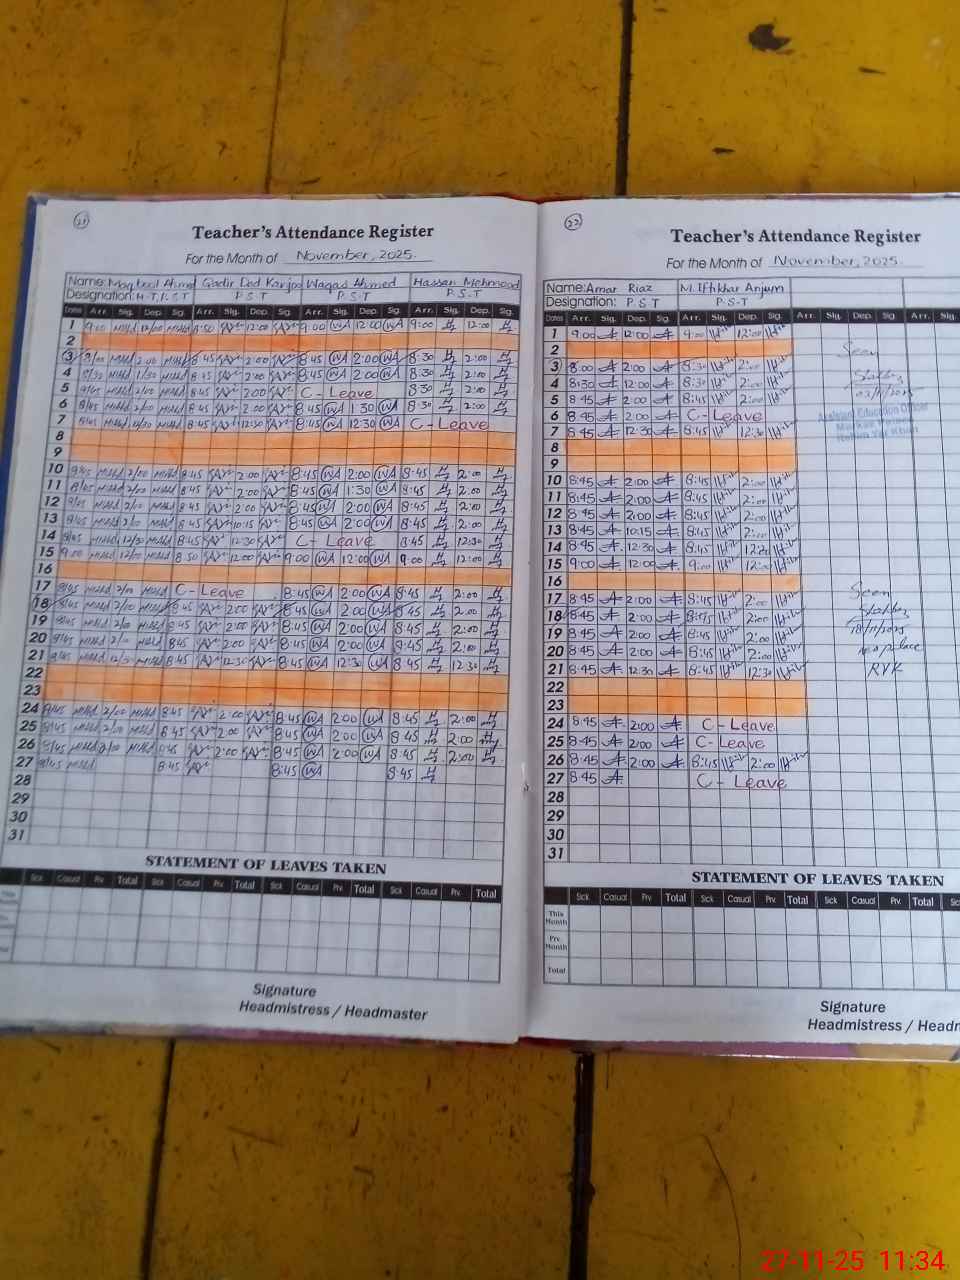 21
Teacher's Attendance Register
For the Month of November, 2025.
Name: Maqbool Ahmd Qadir Dad Waqas Ahmed Hassan Mehmood
Designation: P.S.T P.S.T P.S.T
Dates Arr. Sig. Dep. Sig. Arr. Sig. Dep. Sig. Arr. Sig. Dep. Sig. Arr. Sig. Dep. Sig.
1 9:00 12/00 8:50 12:00 9:00 WA 12:00 WA 9:00 12:00
2
3 2:00 8:45 2:00 8:45 WA 2:00 WA 8:30 2:00
4 8/30 1/30 8:45 2:00 8:45 WA 2:00 WA 8:30 2:00
5 8/45 2/00 8:45 2:00 C - Leave 8:30 2:00
6 8/45 2/00 8:45 2:00 8:45 WA 1:30 WA 8:30 2:00
7 8/45 12/30 8:45 12:30 8:45 WA 12:30 WA C - Leave
8
9
10 8/45 2/00 8:45 2:00 8:45 WA 2:00 WA 8:45 2:00
11 8/45 2/00 8:45 2:00 8:45 WA 1:30 WA 8:45 2:00
12 8/45 2/00 8:45 2:00 8:45 WA 2:00 WA 8:45 2:00
13 8/45 2/00 8:45 10:15 8:45 WA 2:00 WA 8:45 2:00
14 8/45 12/30 8:45 12:30 C - Leave 8:45 12:30
15 9:00 12/00 8:50 12:00 9:00 WA 12:00 WA 9:00 12:00
16
17 8/45 2/00 C - Leave 8:45 WA 2:00 WA 8:45 2:00
18 8/45 2/00 8:45 2:00 8:45 WA 2:00 WA 8:45 2:00
19 8/45 2/00 8:45 2:00 8:45 WA 2:00 WA 8:45 2:00
20 8/45 2/00 8:45 2:00 8:45 WA 2:00 WA 8:45 2:00
21 8/45 12/30 8:45 12:30 8:45 WA 12:30 WA 8:45 12:30
22
23
24 8/45 2/00 8:45 2:00 8:45 WA 2:00 WA 8:45 2:00
25 8/45 2/00 8:45 2:00 8:45 WA 2:00 WA 8:45 2:00
26 8/45 2/00 8:45 2:00 8:45 WA 2:00 WA 8:45 2:00
27 8/45 8:45 8:45 WA 8:45
28
29
30
31
STATEMENT OF LEAVES TAKEN
Sick Casual Prv. Total Sick Casual Prv. Total Sick Casual Prv. Total Sick Casual Prv. Total
Signature
Headmistress / Headmaster
22
Teacher's Attendance Register
For the Month of November, 2025.
Name: Amar Riaz M. Iftikhar Anjum
Designation: P S T P.S.T
Dates Arr. Sig. Dep. Sig. Arr. Sig. Dep. Sig. Arr. Sig. Dep. Sig. Arr. Sig.
1 9:00 12:00 9:00 12:00
2
3 8:00 2:00 8:30 2:00
4 8:30 12:00 8:30 2:00
5 8:45 2:00 8:45 2:00
6 8:45 2:00 C - Leave
7 8:45 12:30 8:45 12:30
8
9
10 8:45 2:00 8:45 2:00
11 8:45 2:00 8:45 2:00
12 8:45 2:00 8:45 2:00
13 8:45 10:15 8:45 2:00
14 8:45 12:30 8:45 12:30
15 9:00 12:00 9:00 12:00
16
17 8:45 2:00 8:45 2:00
18 8:45 2:00 8:45 2:00
19 8:45 2:00 8:45 2:00
20 8:45 2:00 8:45 2:00
21 8:45 12:30 8:45 12:30
22
23
24 8:45 2:00 C - Leave
25 8:45 2:00 C - Leave
26 8:45 2:00 8:45 2:00
27 8:45 C - Leave
28
29
30
31
Seen
Assistant Education Officer
Rahim Yar Khan
Seen
18/11/2025
RYK
STATEMENT OF LEAVES TAKEN
Sick Casual Prv. Total Sick Casual Prv. Total Sick Casual Prv. Total
This Month
Prv Month
Total
Signature
Headmistress /
27-11-25 11:34